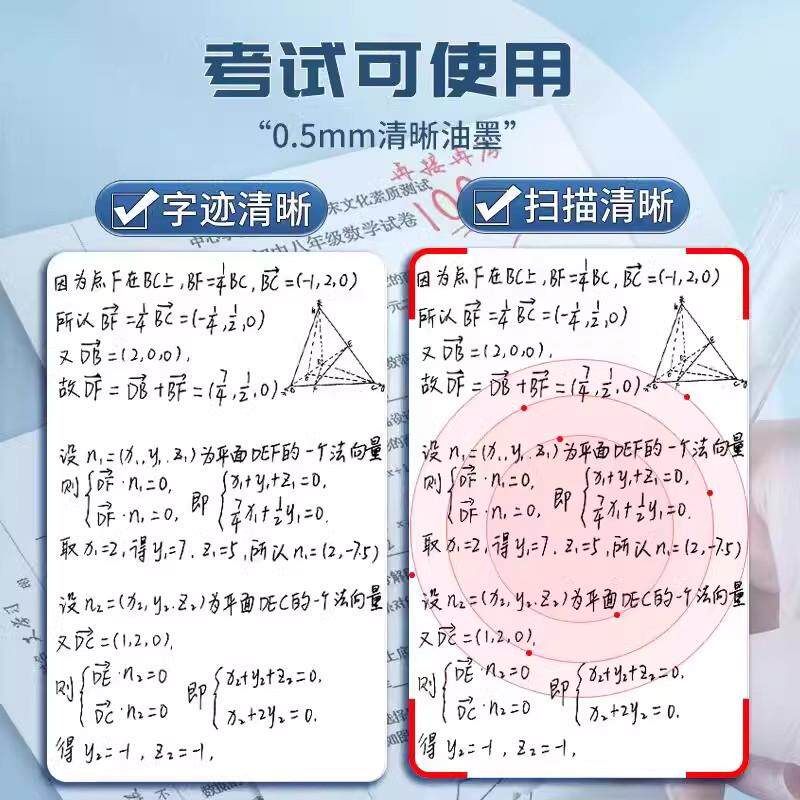 考试可使用
“0.5mm清晰油墨”
再接再
字迹清晰
末文化素质测试
扫描清晰
中八年级数学试卷
100
因为点F在BC上,BF=¼BC,BC→=(-1,2,0)
所以BF→=¼BC→=(-¼,½,0)
又DB→=(2,0,0),
故DF→=DB→+BF→=(7/4,½,0)
设n₁=(x₁,y₁.z₁)为平面DEF的一个法向量
则{DF→·n₁=0, 即{x₁+y₁+z₁=0,
DF→·n₁=0, 7/4x₁+½y₁=0.
取x₁=2,得y₁=7.z₁=5,所以n₁=(2,-7.5)
设n₂=(x₂,y₂.z₂)为平面DEC的一个法向量
又DC→=(1,2,0),
则{DE→·n₂=0 即{x₂+y₂+z₂=0,
DC→·n₂=0 x₂+2y₂=0.
得y₂=-1,z₂=-1,
因为点F在BC上,BF=¼BC,BC→=(-1,2,0)
所以BF→=¼BC→=(-¼,½,0)
又DB→=(2,0,0),
故DF→=DB→+BF→=(7/4,½,0)
设n₁=(x₁,y₁.z₁)为平面DEF的一个法向量
则{DF→·n₁=0, 即{x₁+y₁+z₁=0,
DF→·n₁=0, 7/4x₁+½y₁=0.
取x₁=2,得y₁=7.z₁=5,所以n₁=(2,-7.5)
设n₂=(x₂,y₂.z₂)为平面DEC的一个法向量
又DC→=(1,2,0),
则{DE→·n₂=0 即{x₂+y₂+z₂=0,
DC→·n₂=0 x₂+2y₂=0.
得y₂=-1,z₂=-1,